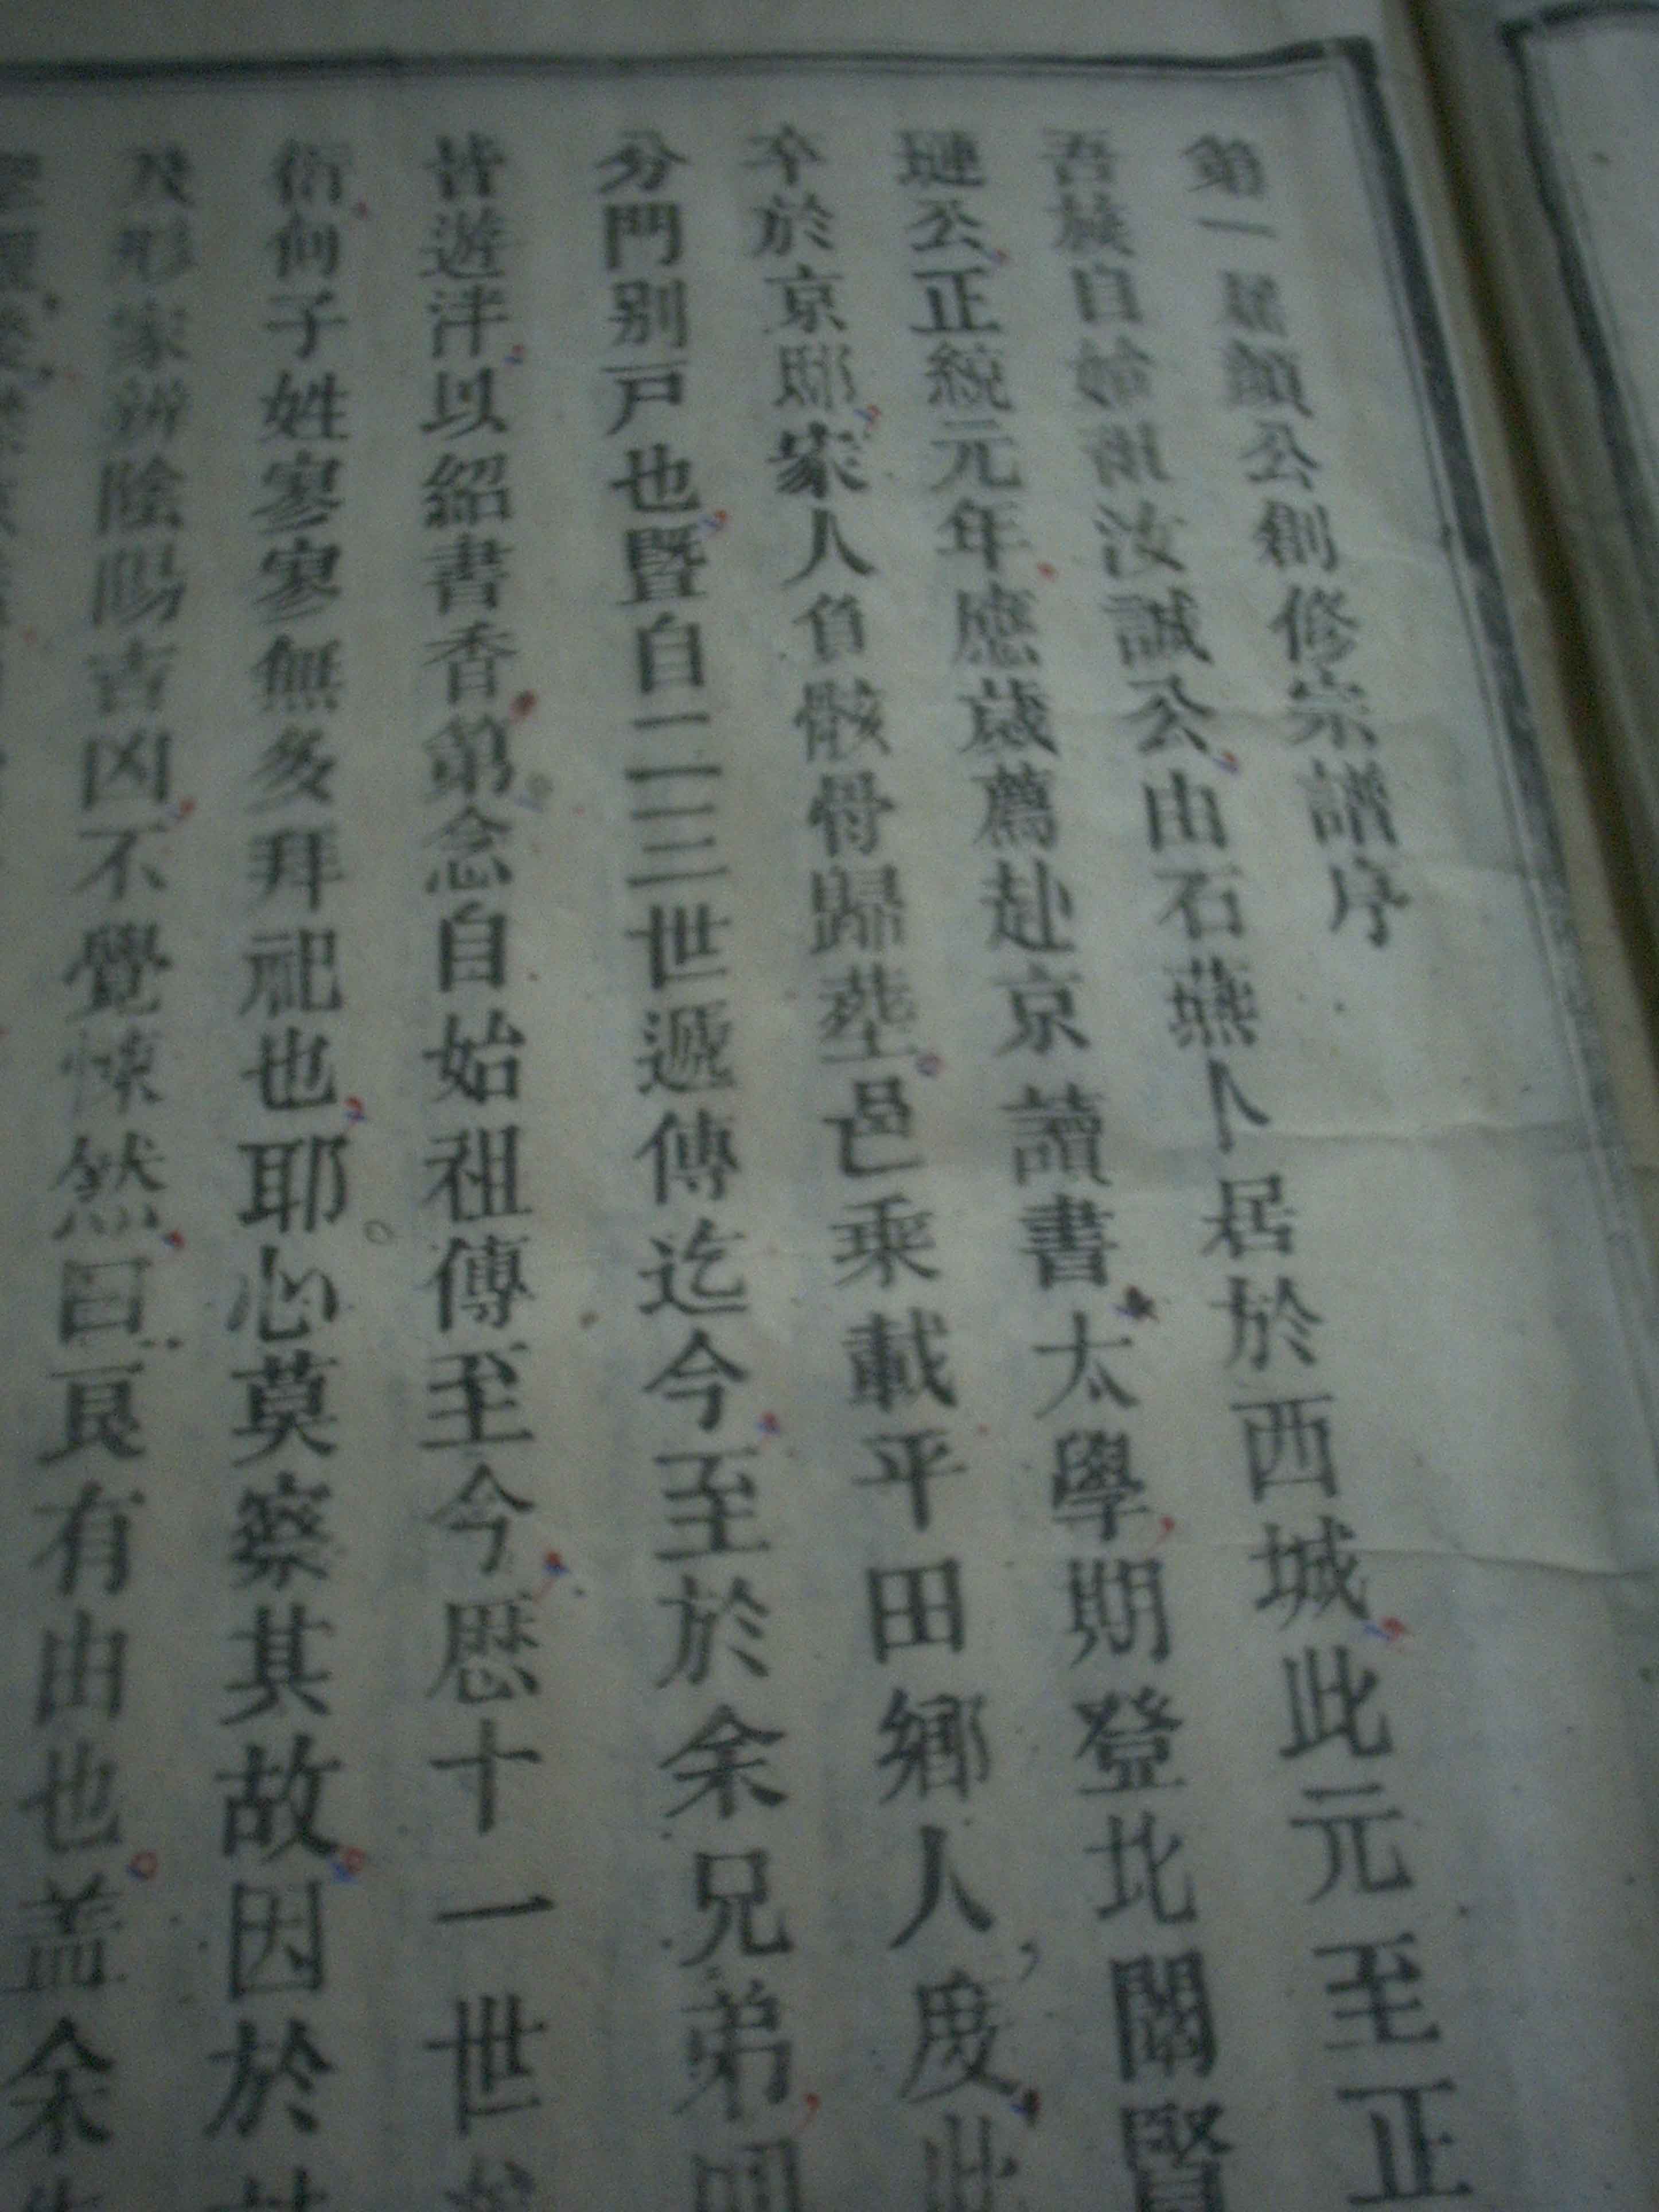 第一屆顯公創修宗譜序
吾族自始祖汝誠公由石燕卜居於西城此元至正
璉公正統元年應歲薦赴京讀書太學期登北闕賢
卒於京邸家人負骸骨歸塟邑乘載平田鄉人度此
分門别戸也暨自二三世遞傳迄今至於余兄弟
皆遊泮以紹書香第念自始祖傳至今歴十一世
衍何子姓寥寥無多拜祀也耶心莫察其故因於
及形家辨陰陽吉凶不覺悚然曰良有由也盖余